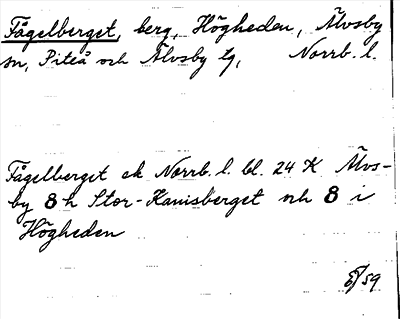 Fågelberget, berg, Högheden, Älvsby
sn, Piteå och Älvsby tg, Norrb. l.
Fågelberget ek Norrb. l. bl. 24 K Älvs-
by 8 h Stor-Kanisberget och 8 i
Högheden
/59